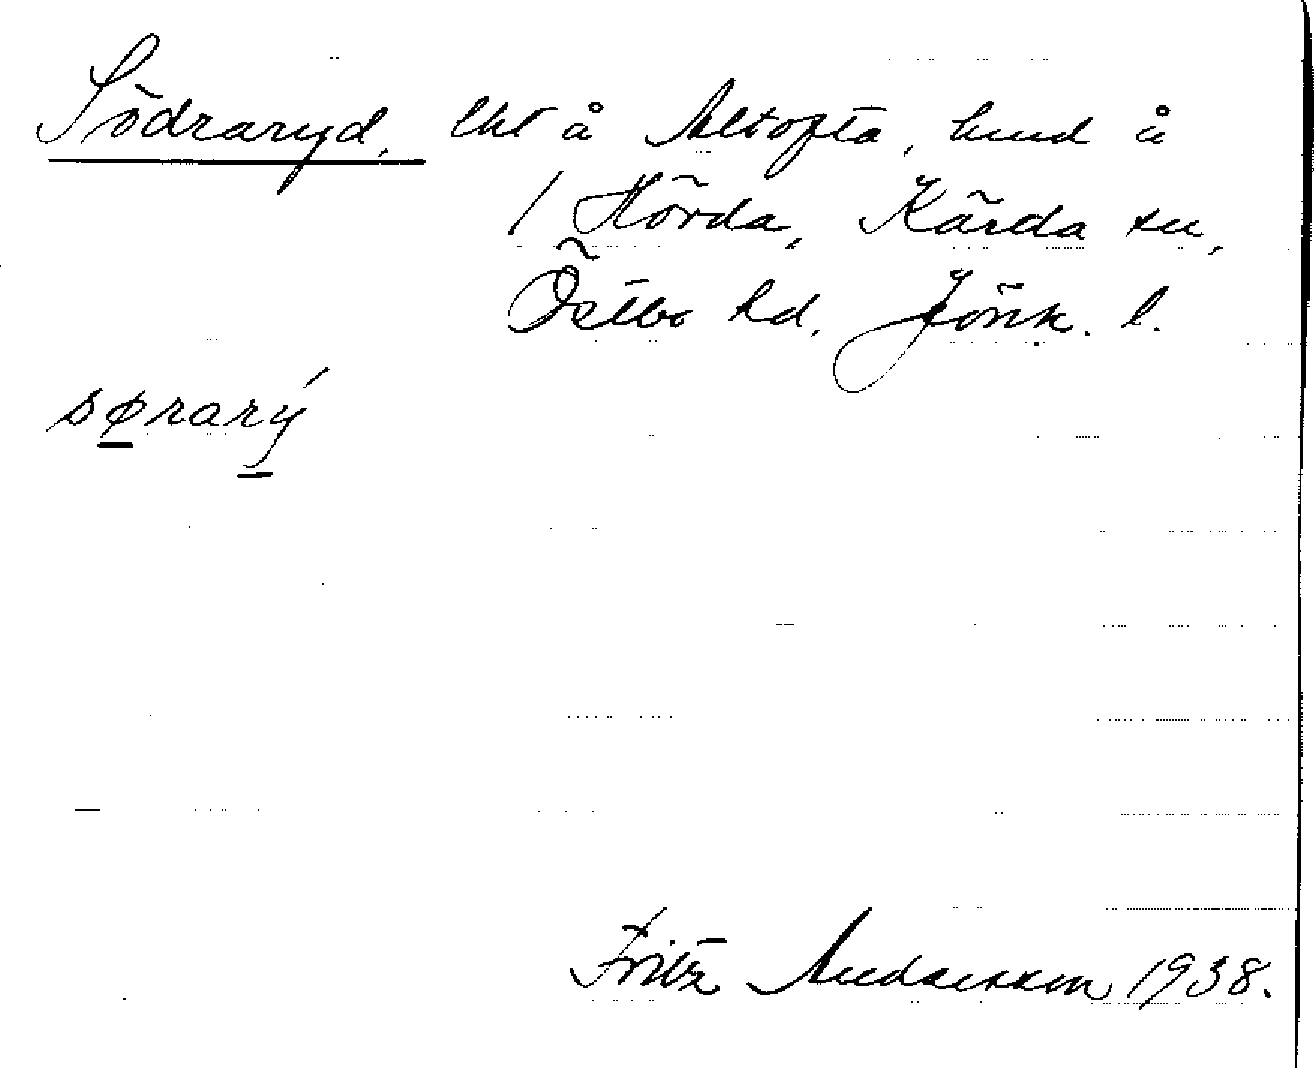 Södraryd, lht å Altofta, hmd å
1 Hörda, Kärda sn,
Östbo hd. Jönk. l.
sørarý
Fritz Andersson 1938.